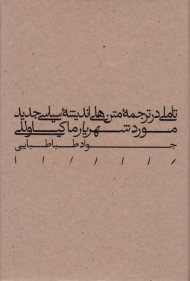 تأملی در ترجمهٔ متن‌های اندیشهٔ سیاسی جدید
مورد شهریار ماکیاوللی
جواد طباطبایی